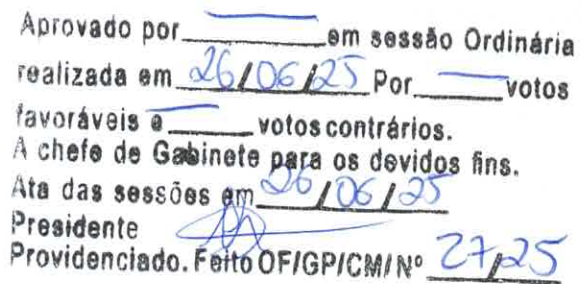 Aprovado por ______ em sessão Ordinária
realizada em 26/06/25 Por ______ votos
favoráveis e ______ votos contrários.
A chefe de Gabinete para os devidos fins.
Ata das sessões em 26/06/25
Presidente
Providenciado. Feito OF/GP/CM/Nº 27/25